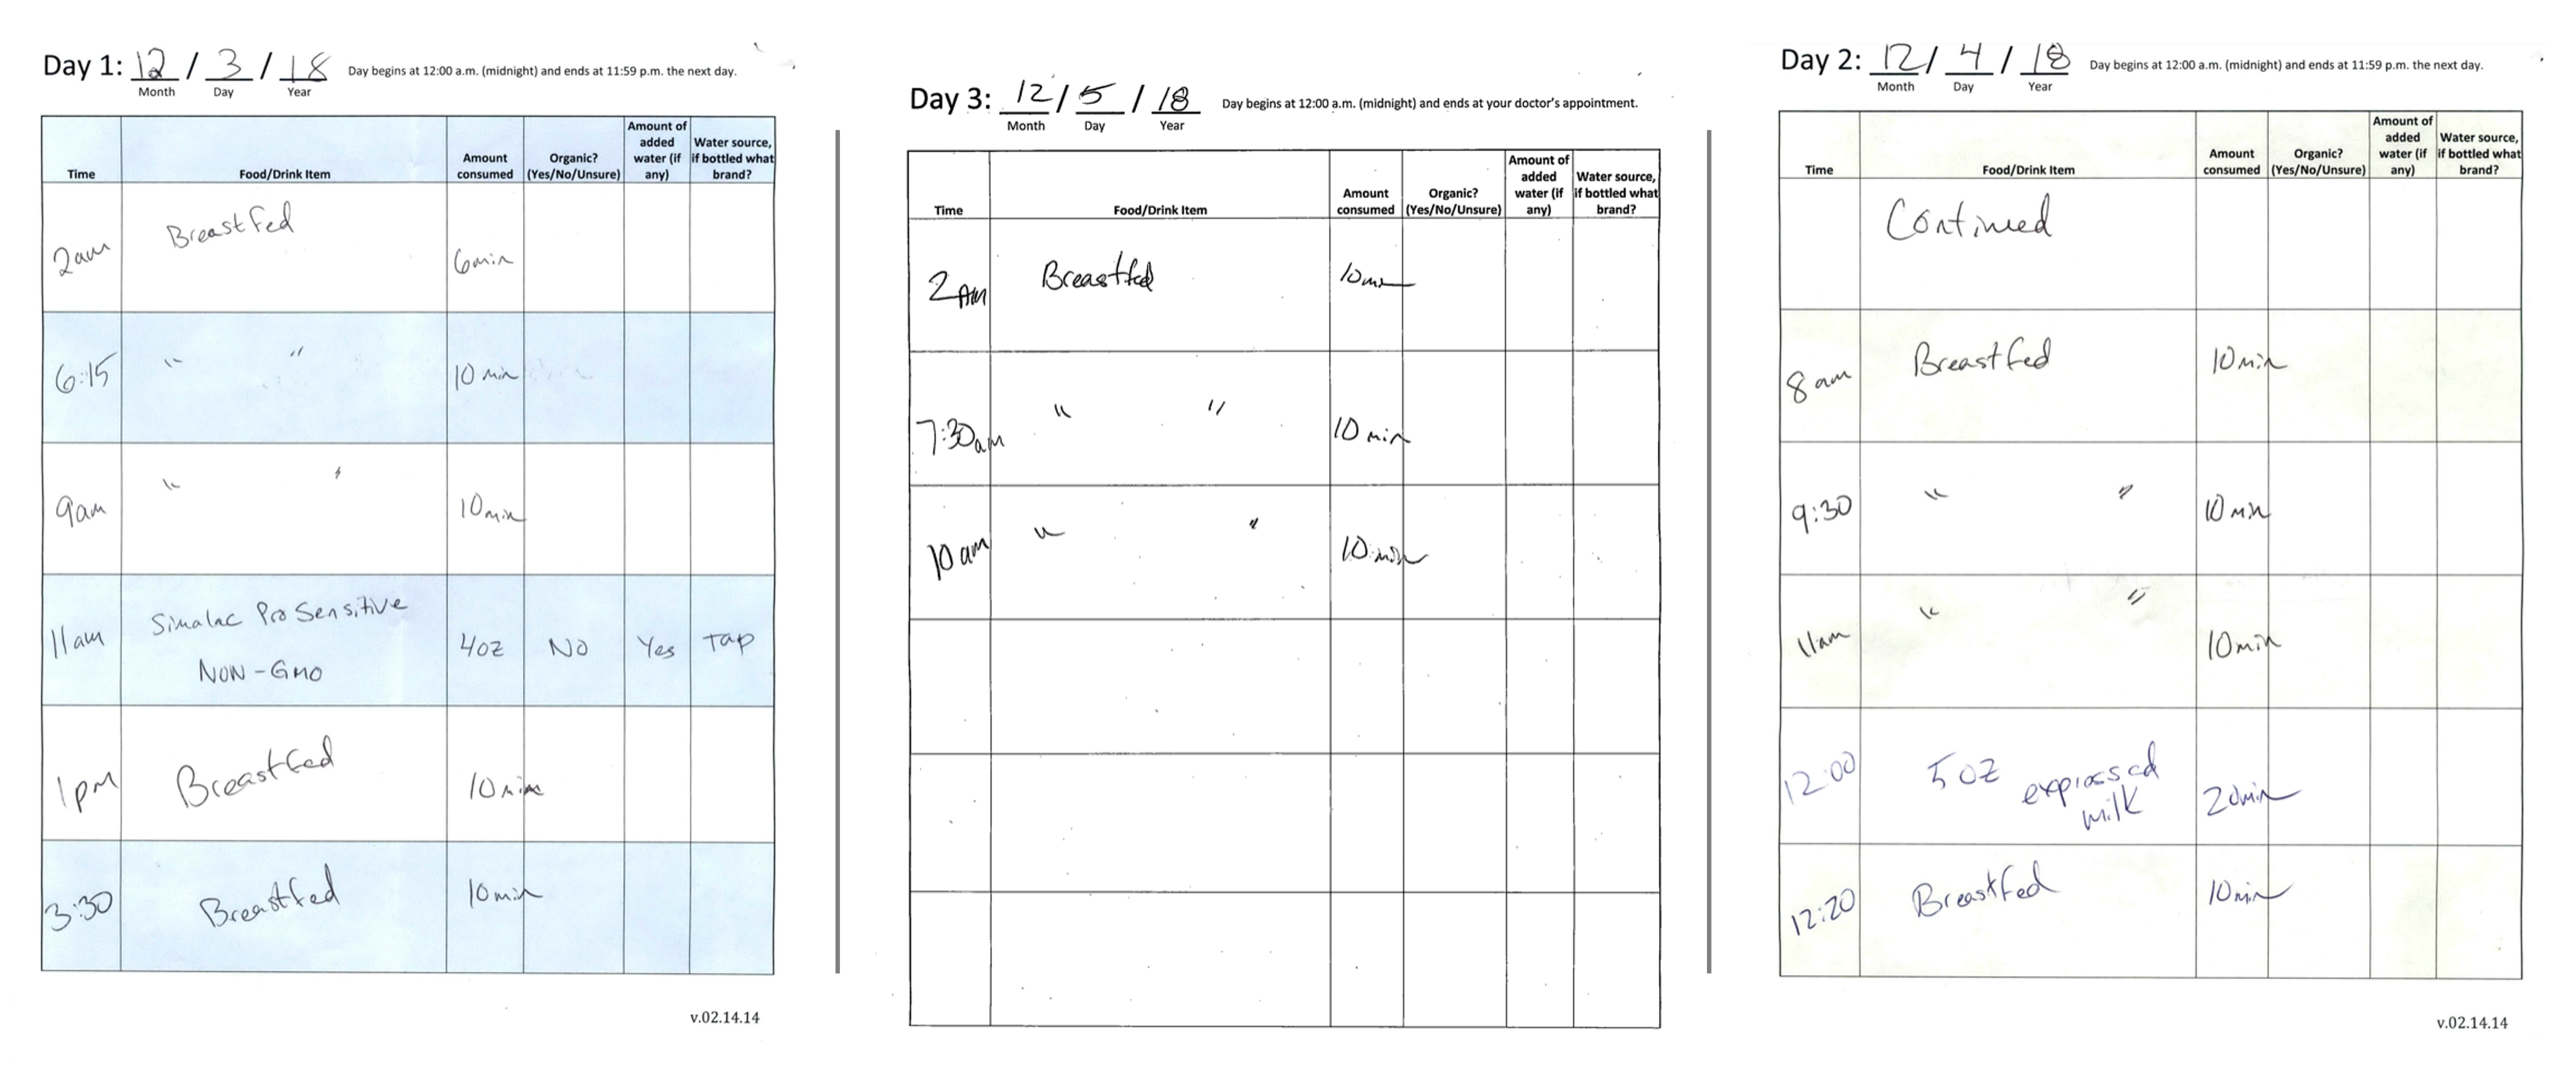 Day 1: 12 / 3 / 18 Day begins at 12:00 a.m. (midnight) and ends at 11:59 p.m. the next day.
Month Day Year
Time Food/Drink Item Amount consumed Organic? (Yes/No/Unsure) Amount of added water (if any) Water source, if bottled what brand?
2am Breastfed 6min
6:15 " " 10 min
9am " " 10min
11am Simalac Pro Sensitive NON-GMO 4oz No Yes Tap
1pm Breastfed 10min
3:30 Breastfed 10min
v.02.14.14
Day 3: 12 / 5 / 18 Day begins at 12:00 a.m. (midnight) and ends at your doctor's appointment.
Month Day Year
Time Food/Drink Item Amount consumed Organic? (Yes/No/Unsure) Amount of added water (if any) Water source, if bottled what brand?
2 AM Breastfed 10min
7:30am " " 10 min
10 am " " 10 min
Day 2: 12 / 4 / 18 Day begins at 12:00 a.m. (midnight) and ends at 11:59 p.m. the next day.
Month Day Year
Time Food/Drink Item Amount consumed Organic? (Yes/No/Unsure) Amount of added water (if any) Water source, if bottled what brand?
Continued
8 am Breastfed 10min
9:30 " " 10 min
11am " " 10min
12:00 5 oz expressed milk 20min
12:20 Breastfed 10min
v.02.14.14